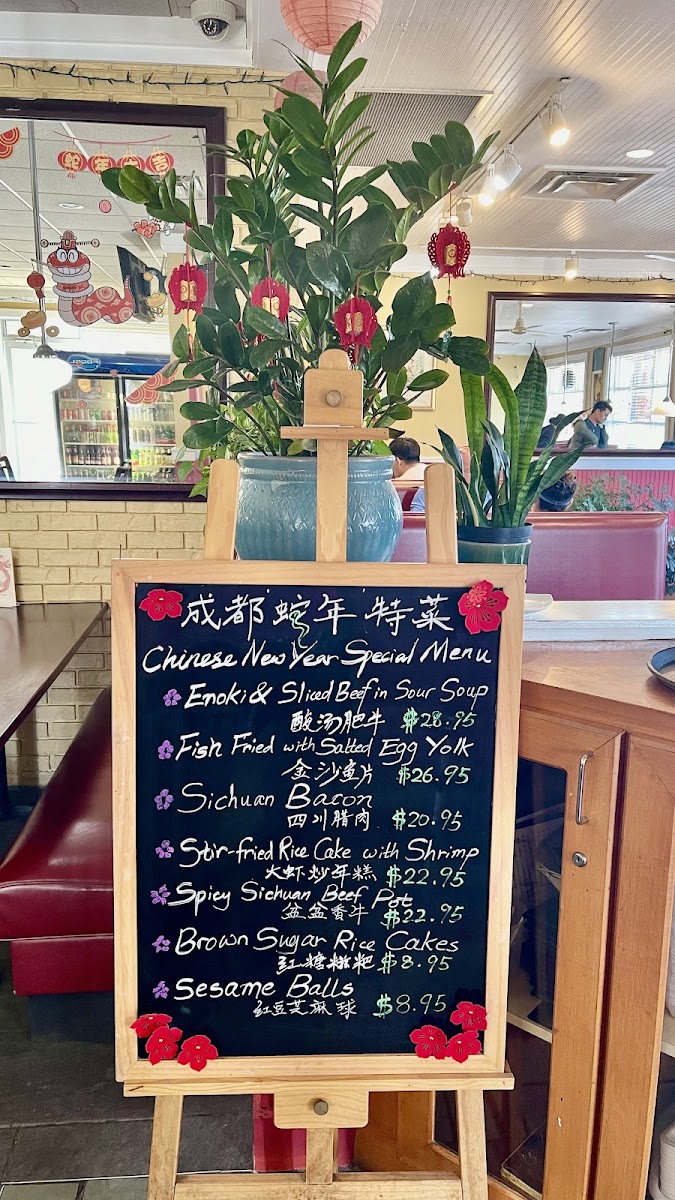 蛇年大吉
成都蛇年特菜
Chinese New Year Special Menu
Enoki & Sliced Beef in Sour Soup
酸汤肥牛 $28.95
Fish Fried with Salted Egg Yolk
金沙鱼片 $26.95
Sichuan Bacon
四川腊肉 $20.95
Stir-fried Rice Cake with Shrimp
大虾炒年糕 $22.95
Spicy Sichuan Beef Pot
盆盆香牛 $22.95
Brown Sugar Rice Cakes
红糖糍粑 $8.95
Sesame Balls
红豆芝麻球 $8.95